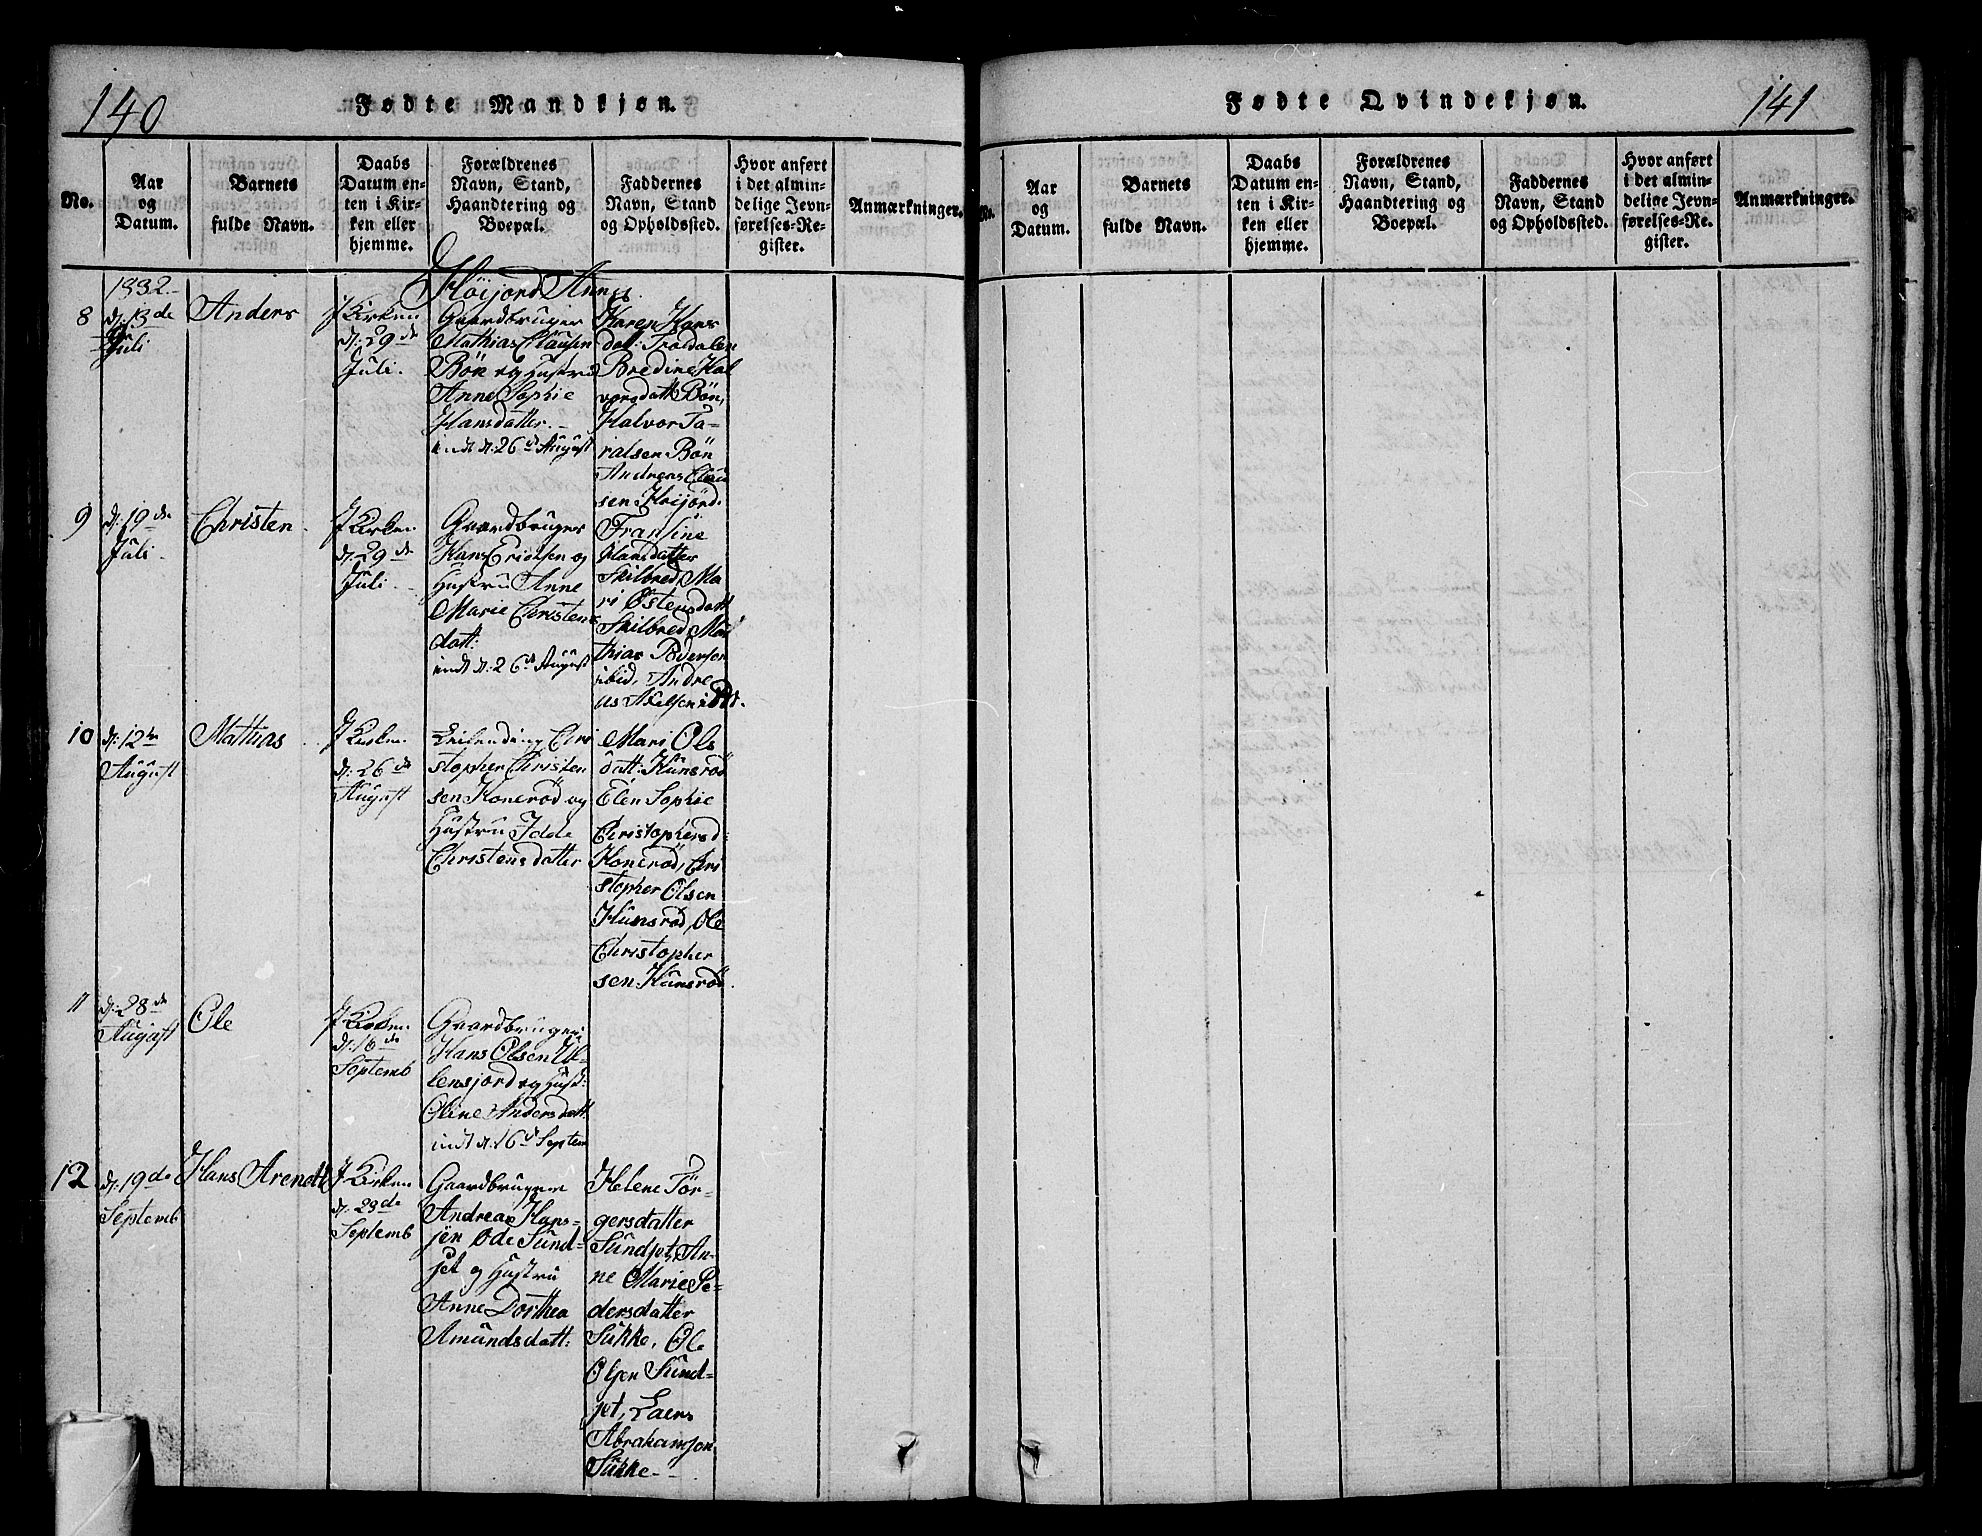 140
Fødte Mandkjøn.
No.
Aar
og
Datum.
Barnets
fulde Navn.
Daabs
Datum en-
ten i Kir-
ken eller
hjemme.
Forældrenes
Navn, Stand,
Haandtering og
Boepæl.
Faddernes
Navn, Stand
og Opholdssted.
Hvor anført
i det almin-
delige Jevn-
førelses-Re-
gister.
Anmærkninger.
Høijord Annex
8
1832.
d: 13de
Juli
Anders
I Kirken
d: 29de
Juli.
Gaardbruger
Mathias Clausen
Bön og Hustru
Anne Sophie
Hansdatter.-
indt d: 26de August
Karen Hans
dat: Trædalen
Bredine Hal
vorsdatt Bön,
Halvor Ta-
ralsen Bön
Andreas Clau
sen Høijord.
9
d: 19de
Juli.
Christen.
I Kirken
d: 29de
Juli.
Gaardbruger
Hans Erichsen og
Hustru Anne
Marie Christens
datt:
indt d: 26de August
Fransine
Hansdatter
Skilbred, Ma
ri Østensdatt
Skilbred, Ma
thias Pedersen
ibid, Andre
as Axelsen ibid.
10
d: 12te
August
Mathias
I Kirken
d: 26de
August
Leilending Chri
stopher Christen
sen Konerød og
Hustru Idde
Christensdatter
Mari Ols
datt: Kunsrød
Elen Sophie
Christophersd:
Konerød, Chri
stopher Olsen
Kunsrød, Ole
Christopher
sen Kunsrød.
11
d: 28de
August
Ole
I Kirken
d: 16de
Septemb
Gaardbruger
Hans Olsen Ul-
lensjord og Hust:
Oline Andersdatt:
indt d: 16de Septem
12
d: 19de
Septemb
Hans Arendt
I Kirken
d. 29de
Septemb
Gaardbruger
Andreas Han-
sen Øde Sund-
set og Hustru
Anne Dorthea
Amundsdatt:
Helene Tör-
gersdatter
Sundset, An-
ne Marie Pe-
dersdatter
Sukke, Ole
Olsen Sund-
set, Laers
Abrahamsen
Sukke.-
141
Fødte Qvindekjøn.
No.
Aar
og
Datum.
Barnets
fulde Navn.
Daabs
Datum en-
ten i Kir-
ken eller
hjemme.
Forældrenes
Navn, Stand,
Haandtering og
Boepæl.
Faddernes
Navn, Stand
og Opholdssted.
Hvor anført
i det almin-
delige Jevn-
førelses-Re-
gister.
Anmærkninger.